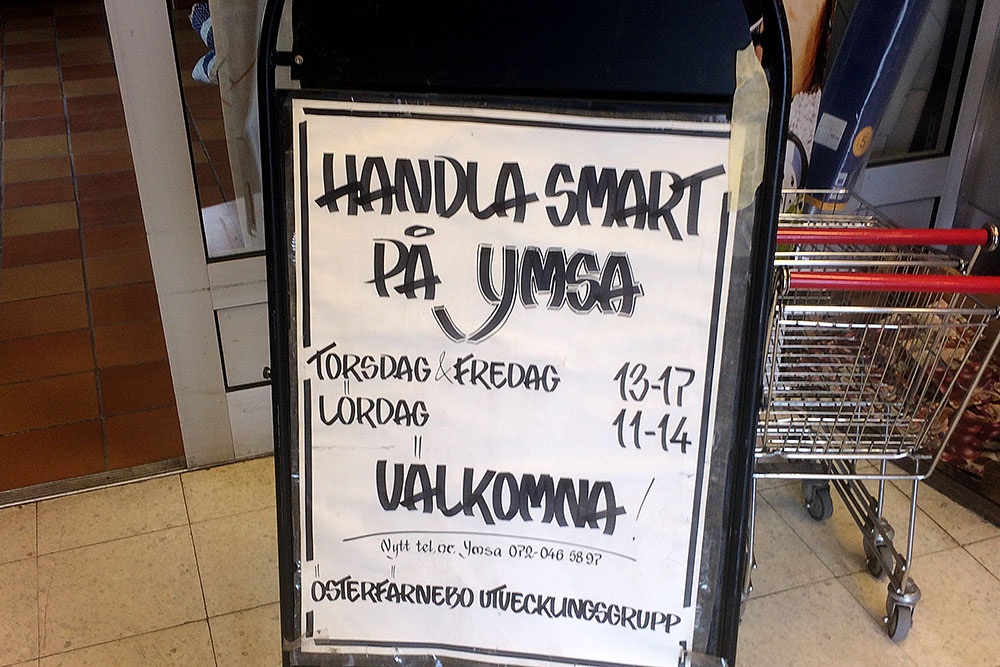 HANDLA SMART
PÅ YMSA
TORSDAG & FREDAG 13-17
LÖRDAG 11-14
VÄLKOMNA!
Nytt tel.nr. Ymsa 072-046 58 97
ÖSTERFÄRNEBO UTVECKLINGSGRUPP
5